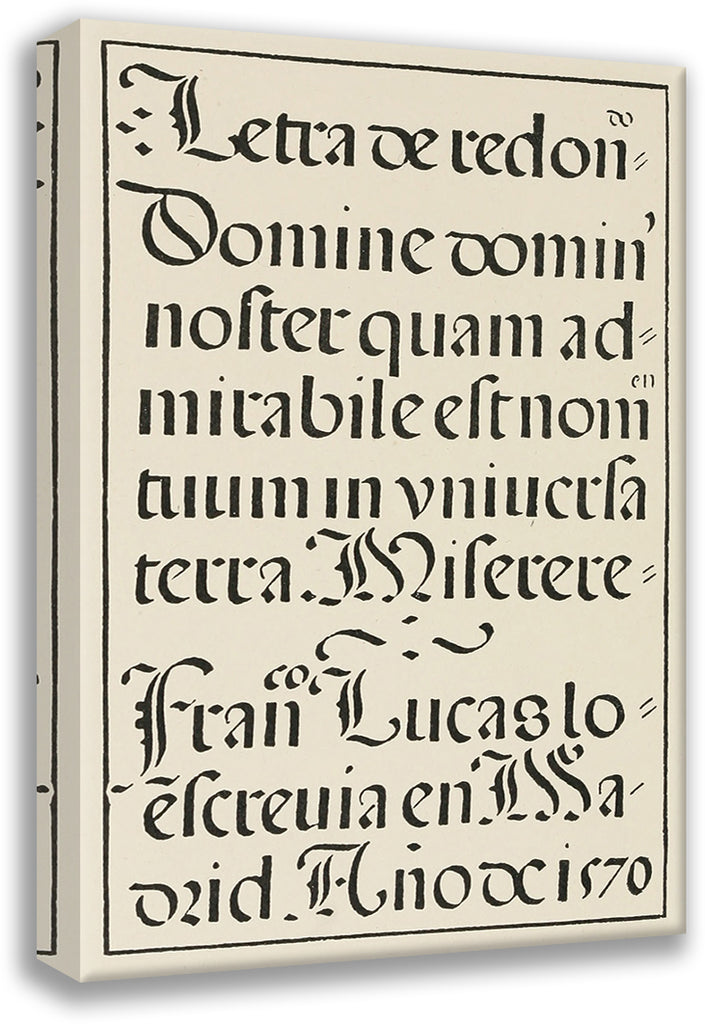 Letra de redonᵈᵒ=
Domine domin'
noſter quam ad=
mirabile eſt nomᵉⁿ
tuum in vniuerſa
terra. Miſerere=
Franᶜᵒ Lucas lo=
eſcreuia en Ma-
drid. Año de 1570